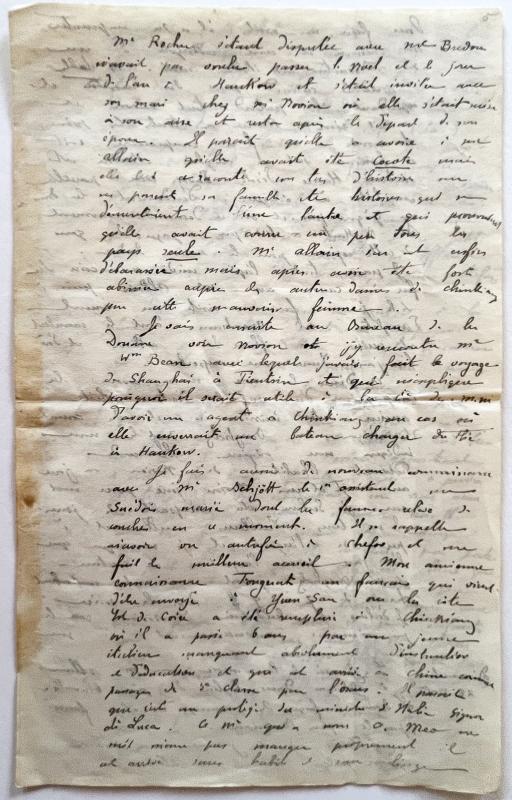 Mme Rocher s'étant disputée avec Mme Bredon
n'avait pas voulu passer le Noel et le jour
de l'an à Hankow et s'était invitée avec
son mari chez Mr Novion où elle s'était mise
à son aise et resta après le départ de son
époux. Il paraît qu'elle a avoué à Mme
Allain qu'elle avait été cocote mais
elle lui a raconté un tas d'histoires
sa famille etc histoires qui se
démentaient l'une l'autre et qui prouvaient
qu'elle avait couru un peu tous les
pays seule. Mme Allain s'en est enfin
débarrassée mais après avoir été fort
abimée auprès des autres dames de Chinkiang
par cette mauvaise femme.
Je vais ensuite au Bureau de la
Douane voir Novion et j'y rencontre Mr
Wm Bean avec lequel j'avais fait le voyage
de Shanghai à Tientsin et qui m'explique
pourquoi il serait utile à la Cie des M.M
d'avoir un agent à Chinkiang au cas où
elle enverrait un bateau charger du thé
à Hankow.
Je fais aussi de nouveau connaissance
avec Mr Schjött le 1er assistant un
Suédois marié dont la femme relève de
couches en ce moment. Il se rappelle
m'avoir vu autrefois à Chefoo et me
fait le meilleur accueil. Mon ancienne
connaissance Fonquat un français qui vient
d'être envoyé à Yuen San sur la côte
Est de Corée a été remplacé à Chinkiang
où il a passé 6 ans par un jeune
italien manquant absolument d'instruction
et d'éducation et qui est arrivé en Chine comme
passager de 3e classe par l'
que c'est un protégé du ministre d'Italie Signor
de Luca. Ce Mr qui a nom D. Meo
même pas manger proprement il
est arrivé sans habits et sans linge